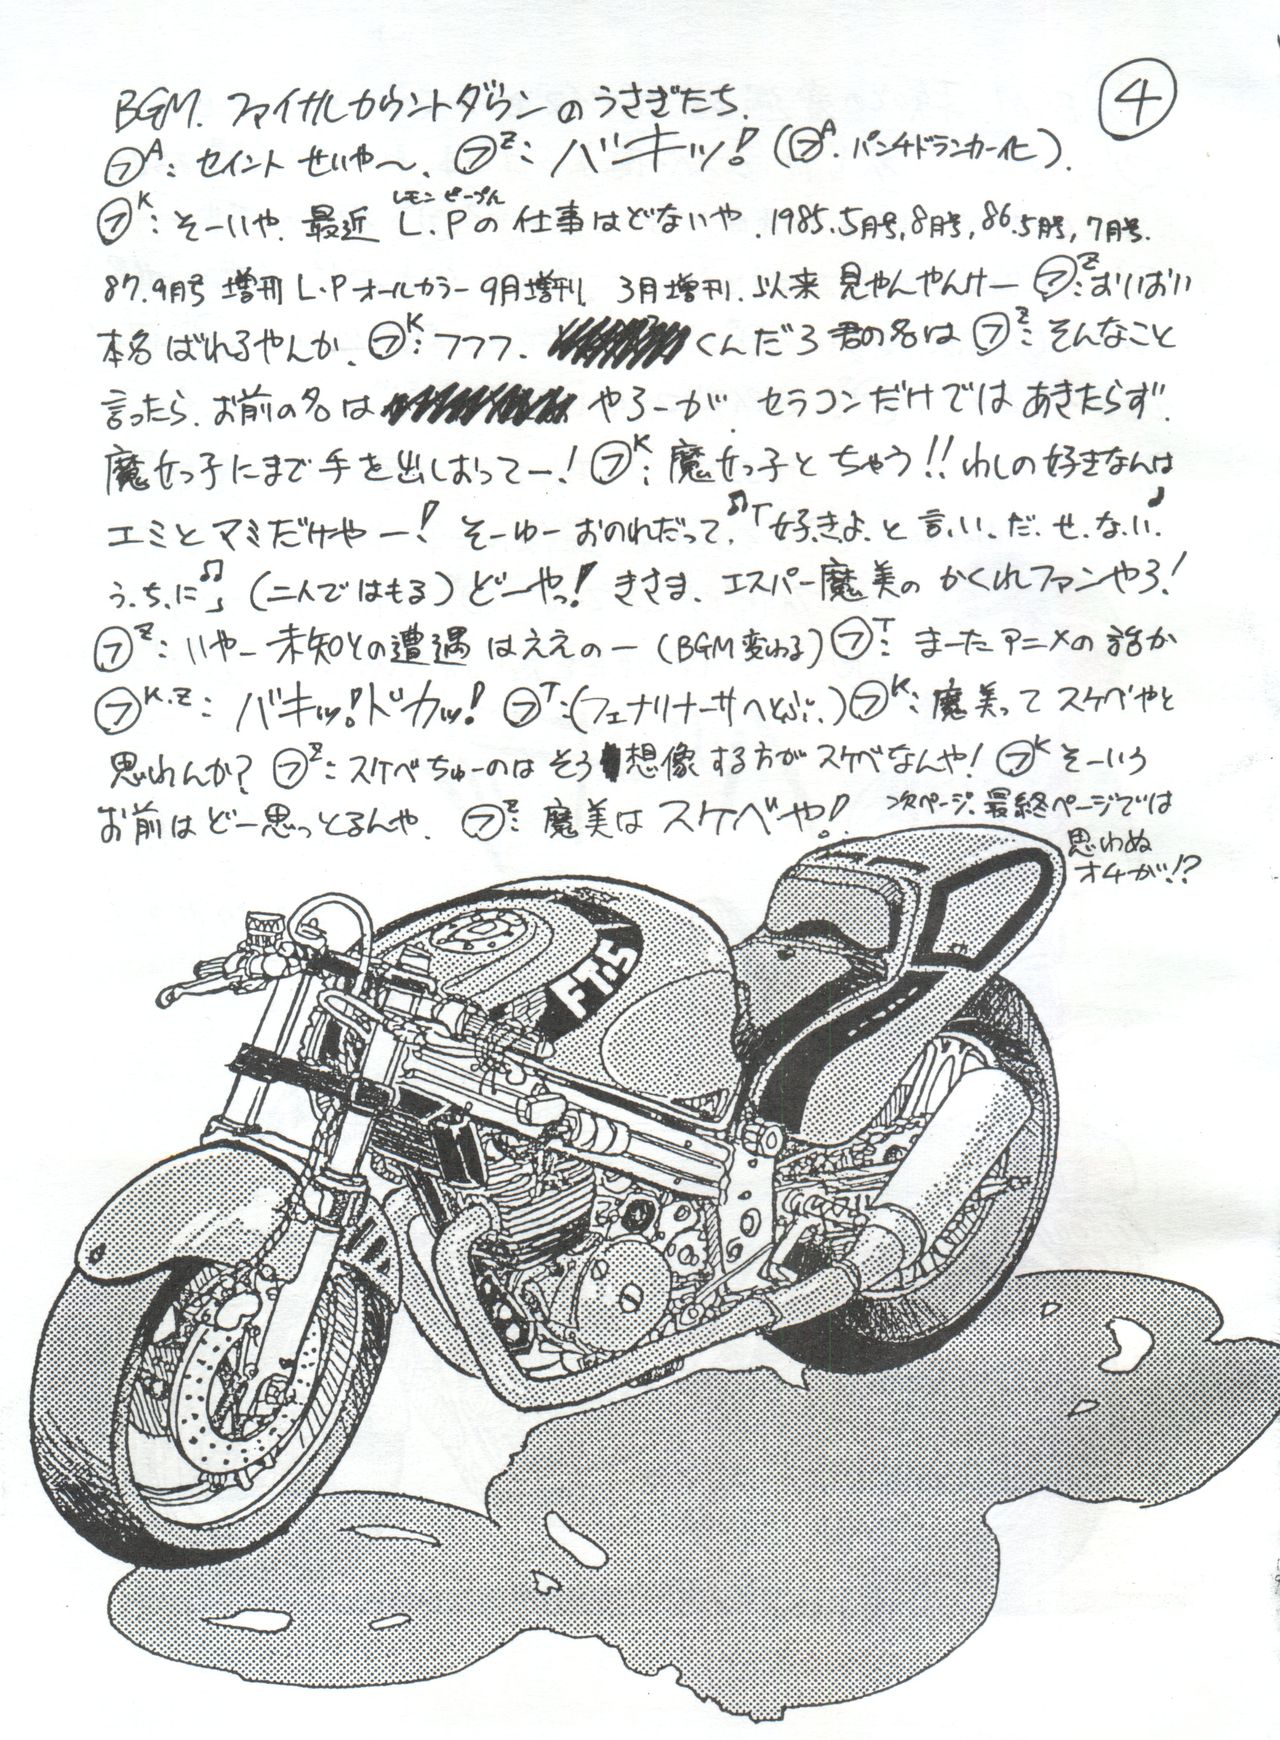 ④
BGM. ファイナルカウントダウンのうさぎたち.
㋫A: セイント せいや〜、㋫Z: バキッ! (㋫A. パンチドランカー化).
レモン ピープル
㋫K: そーいや. 最近 L.Pの仕事はどないや. 1985.5月号, 8月号, 86.5月号, 7月号.
87.9月号 増刊 L.Pオールカラー 9月増刊 3月増刊. 以来 見やんやんけー ㋫Z: おいおい
本名 ばれるやんか. ㋫K: フフフ. くんだろ君の名は ㋫Z: そんなこと
言ったら. お前の名は やろーが. セラコンだけでは あきたらず.
魔女っ子にまで手を出しおってー! ㋫K: 魔女っ子とちゃう!! わしの好きなんは
エミとマミだけやー! そーゆー おのれだって, ♫「好.きよ.と 言.い.だ.せ.な.い♪
う.ち.に♫」(二人ではもる) どーやっ! きさま. エスパー魔美の かくれファンやろ!
㋫Z: いやー 未知との遭遇 はええのー (BGM変わる) ㋫T: まーたアニメの話か
㋫K.Z: バキッ!ドカッ! ㋫T: (フェナリナーサへとぶ.) ㋫K: 魔美って スケベやと
思われんか? ㋫Z: スケベちゅーのは そう 想像する方がスケベなんや! ㋫K そーいう
お前は どー思っとるんや. ㋫Z: 魔美は スケベや! 次ページ. 最終ページでは
思わぬ
オチが!?
FT.5